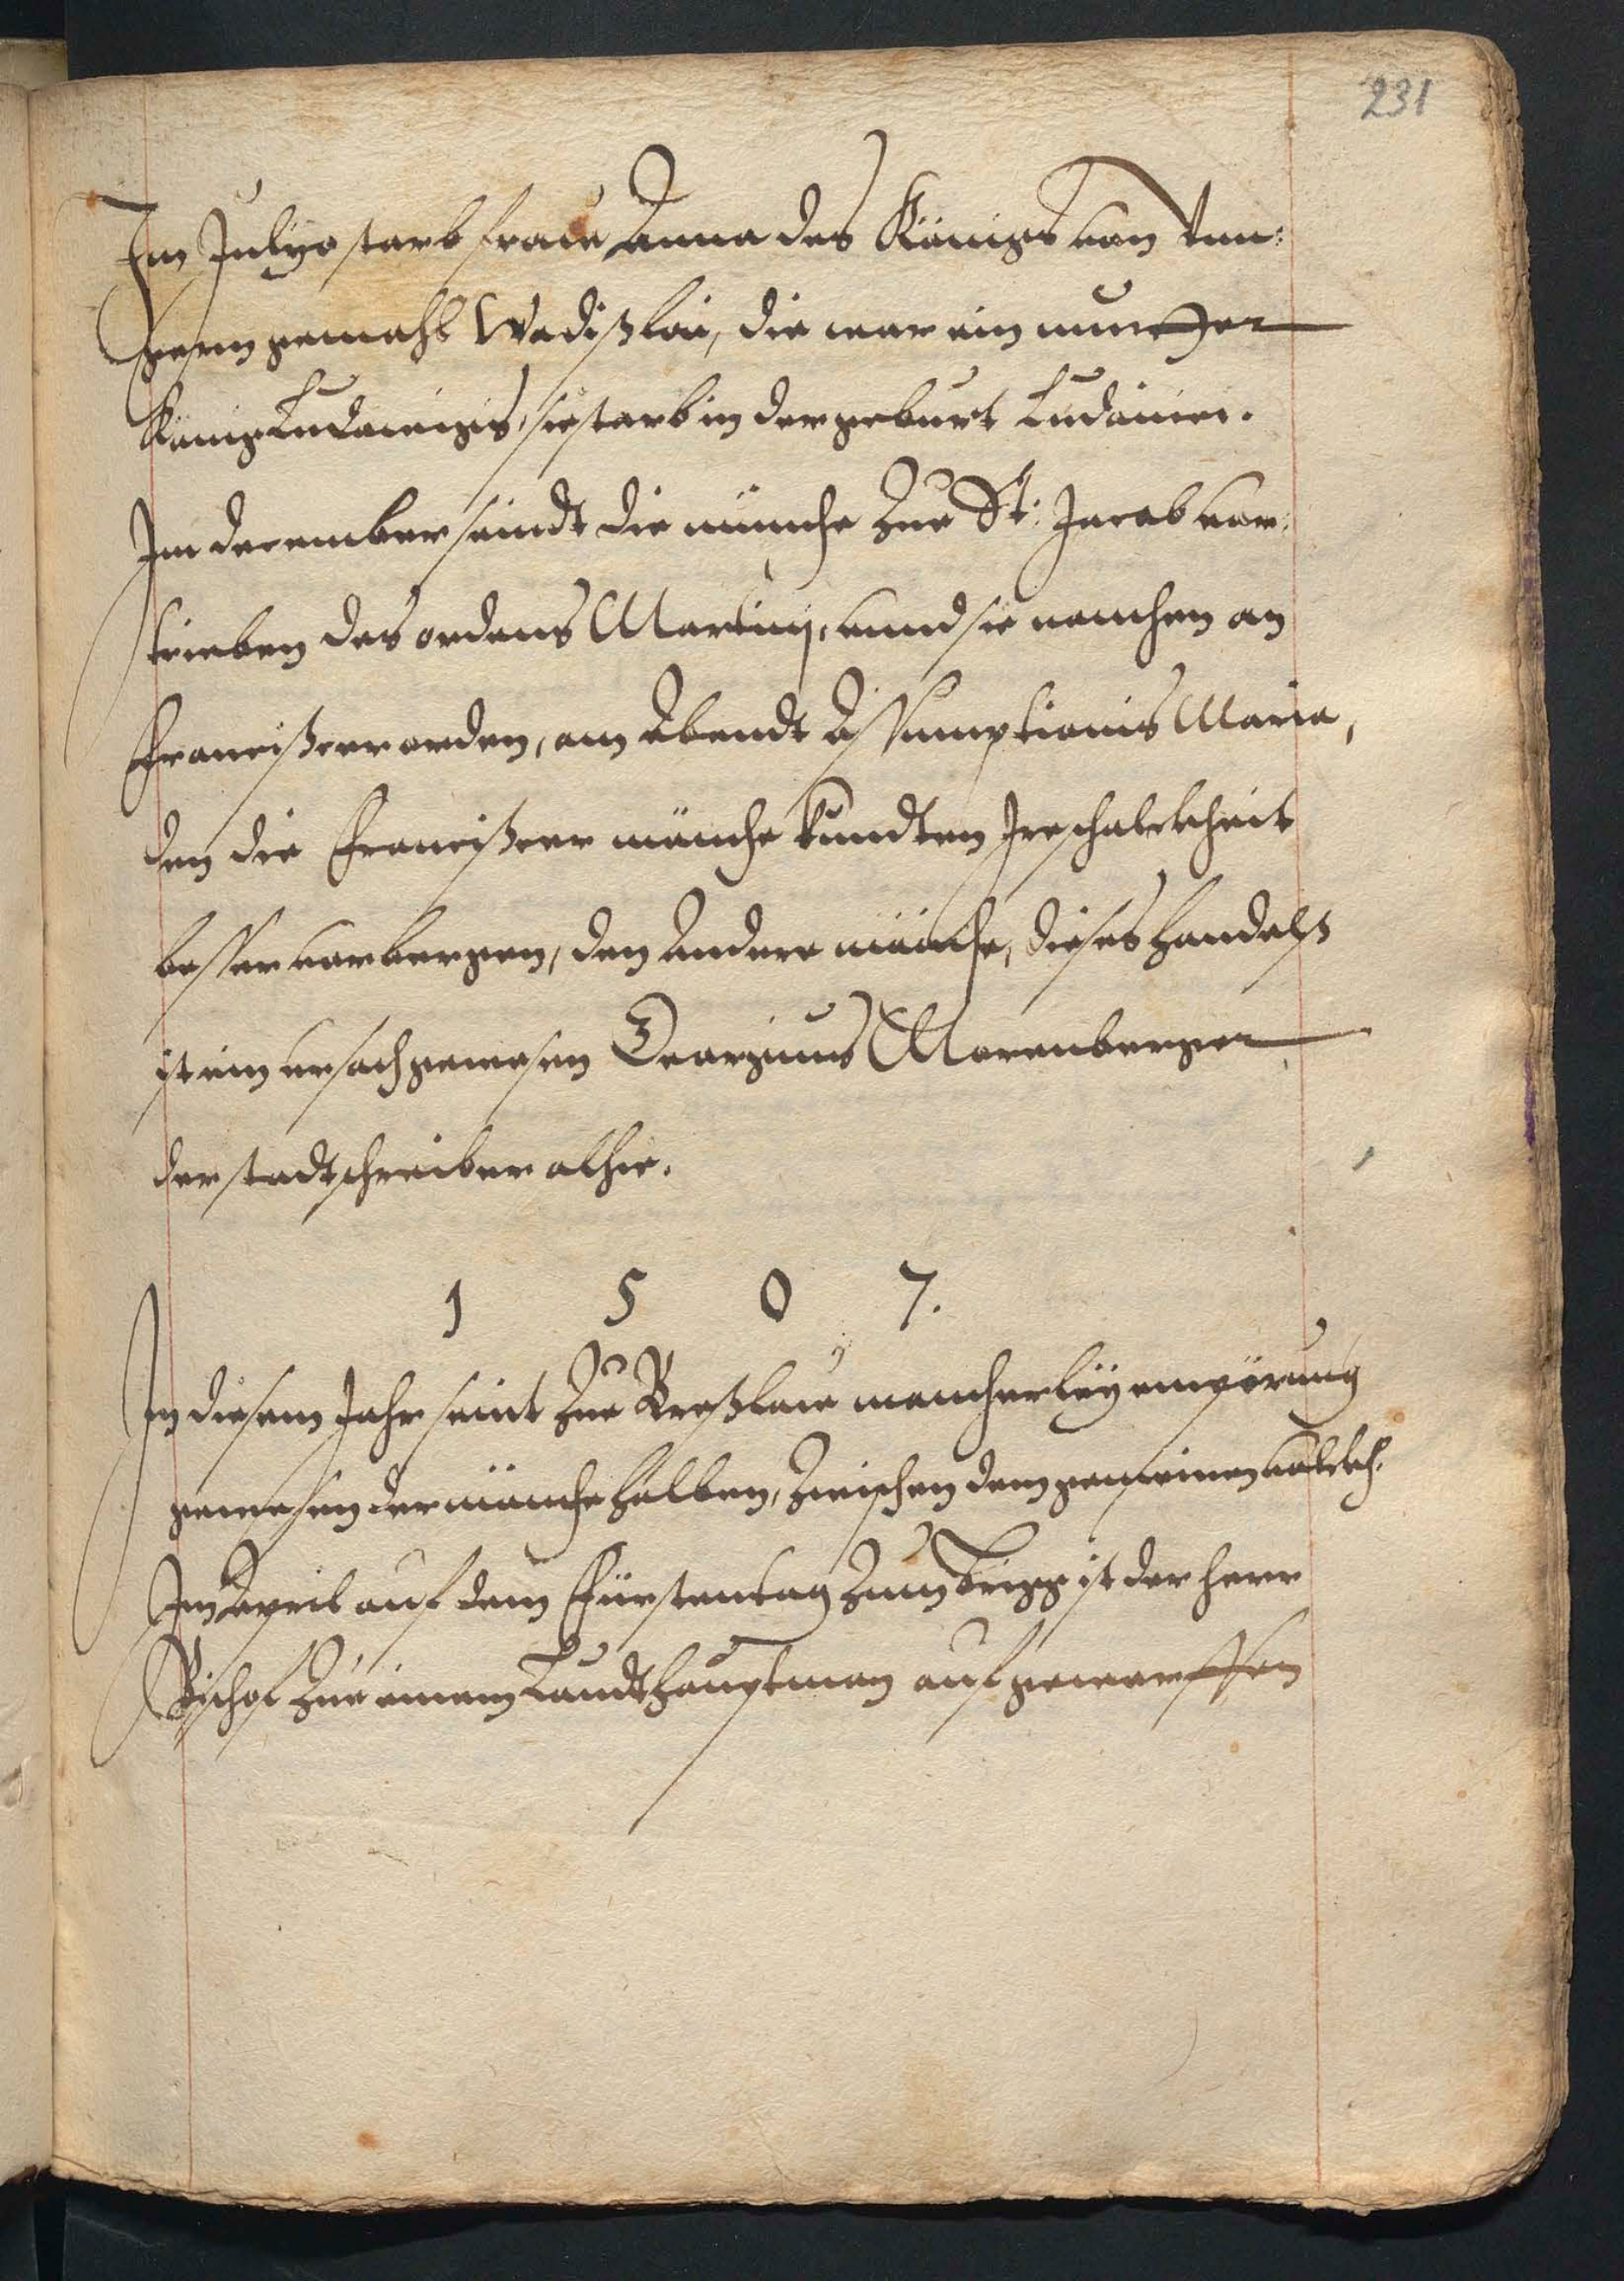 231
Im Julyo starb fraw Anna des Königs von Vn:
gern gemahl Wladißlai, die war ein mutter
König Ludwigs, sie starb in der geburt Ludovici.
Im december seindt die münche zue St: Jacob ver:
trieben des ordens Martini, vnnd sie namen an
Francißcer orden, am Abendt Assumptionis Maria,
den die Francißcer münche kundten Ire schalckheit
besser verbergen, den Andere münche, dieses handelß
ist ein vrsach gewesen Gregorius Morenberger
der stadtschreiber alhie.
1 5 0 7.
In diesem Jahr seint zue Breßlaw mancherley empörung
gewesen der münche halben, zwischen dem gemeinen volck.
Im April auf dem Fürstentag zum Brigg ist der herr
Bischof zue einem Landtshauptman aufgeworffen